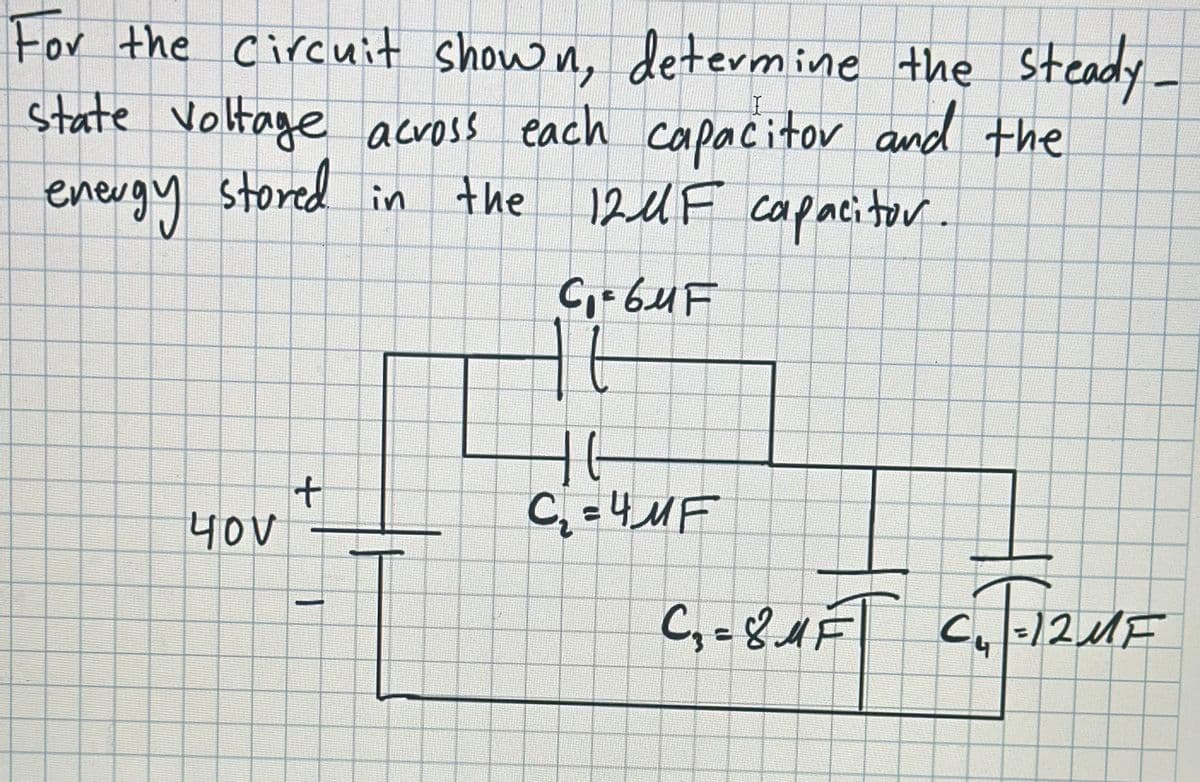 For the circuit shown, determine the steady-
state voltage across each capacitor and the
energy stored in the 12μF capacitor.
C₁=6μF
+
40V
C₂=4μF
−
C₃=8μF C₄=12μF